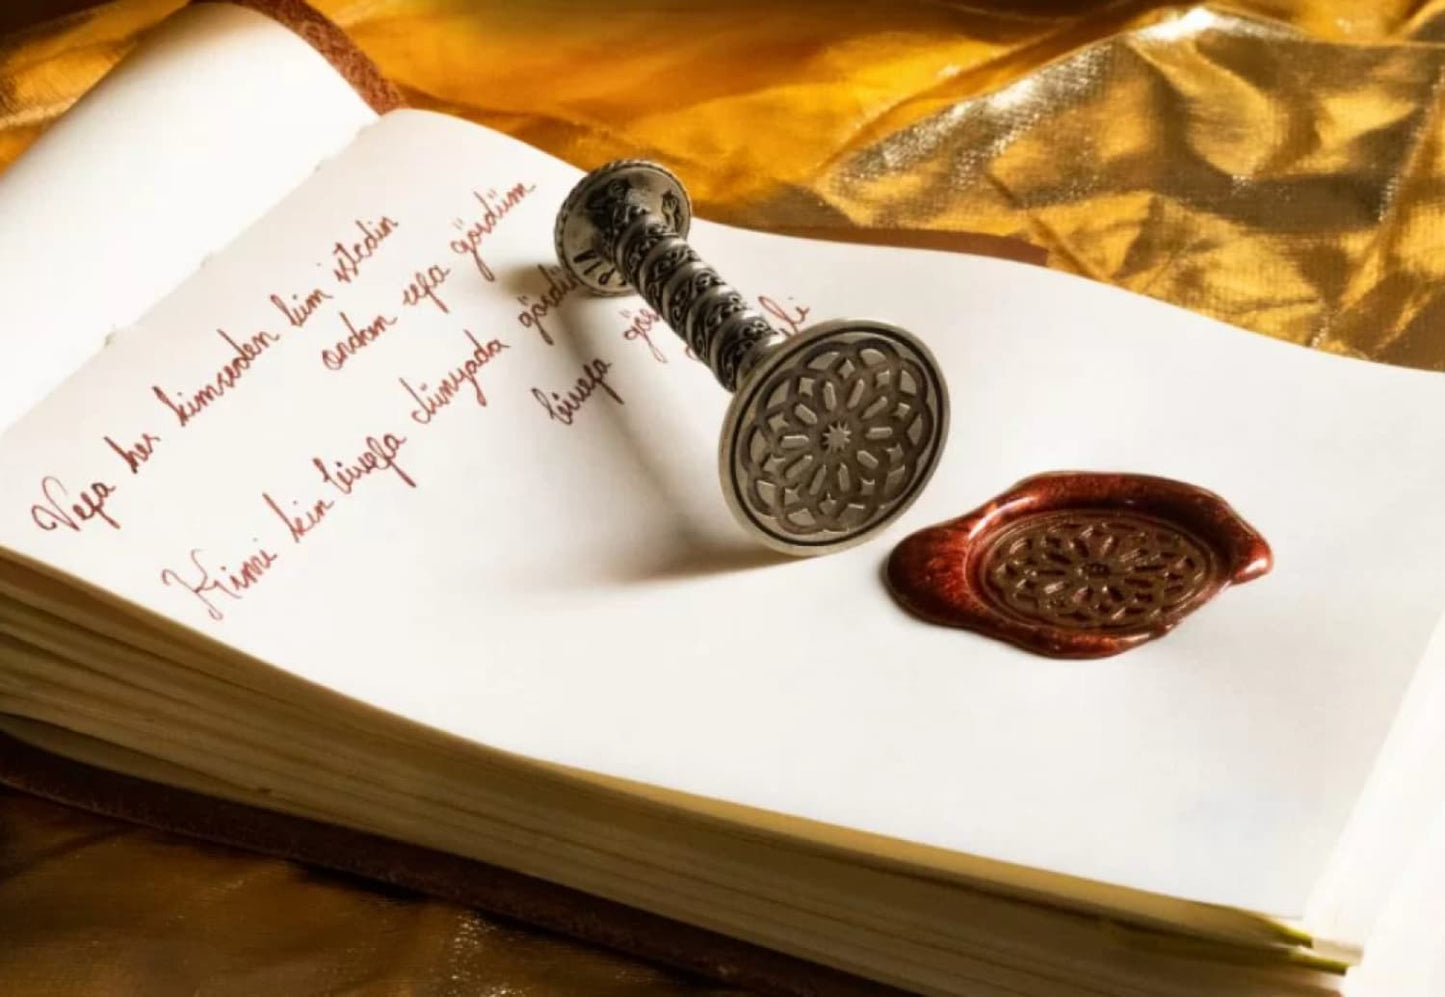 Vefa her kimseden kim istedin
ondan cefa gördüm
Kimi kin bivefa dünyada
bivefa